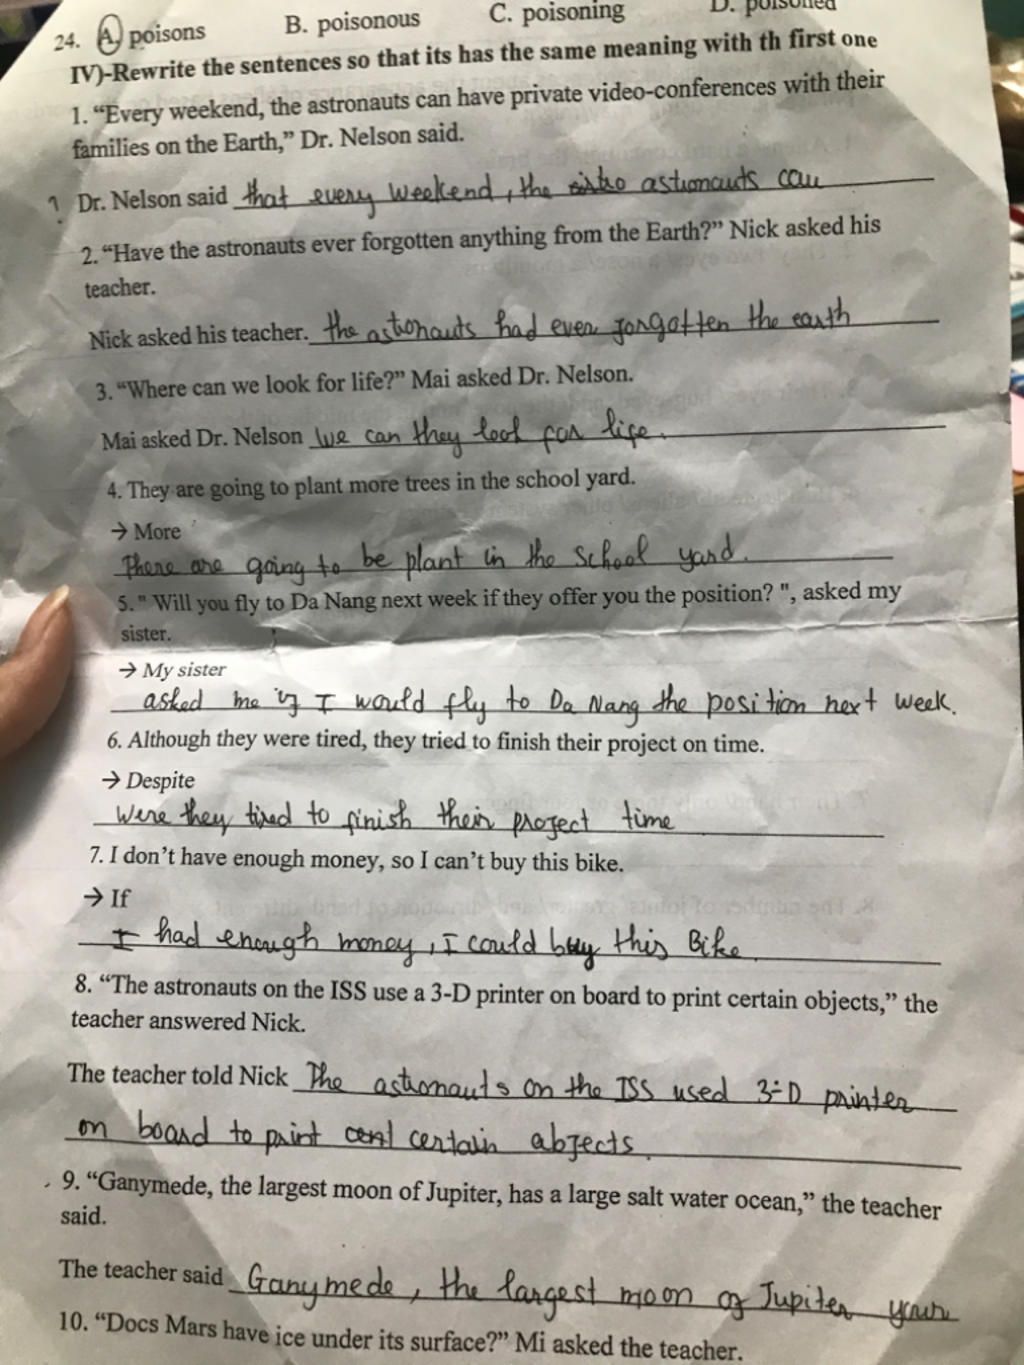 24. A poisons B. poisonous C. poisoning D. poisoned
IV)-Rewrite the sentences so that its has the same meaning with th first one
1. “Every weekend, the astronauts can have private video-conferences with their
families on the Earth,” Dr. Nelson said.
Dr. Nelson said that every weekend, the astronauts can
2. “Have the astronauts ever forgotten anything from the Earth?” Nick asked his
teacher.
Nick asked his teacher. the astronauts had ever forgotten the earth
3. “Where can we look for life?” Mai asked Dr. Nelson.
Mai asked Dr. Nelson we can they look for life.
4. They are going to plant more trees in the school yard.
→ More
There are going to be plant in the school yard.
5. " Will you fly to Da Nang next week if they offer you the position? ", asked my
sister.
→ My sister
asked me if I would fly to Da Nang the position next week.
6. Although they were tired, they tried to finish their project on time.
→ Despite
were they tired to finish their project time
7. I don’t have enough money, so I can’t buy this bike.
→ If
I had enough money, I could buy this Bike.
8. “The astronauts on the ISS use a 3-D printer on board to print certain objects,” the
teacher answered Nick.
The teacher told Nick The astronauts on the ISS used 3-D printer
on board to print certain objects.
9. “Ganymede, the largest moon of Jupiter, has a large salt water ocean,” the teacher
said.
The teacher said Ganymede, the largest moon of Jupiter
10. “Docs Mars have ice under its surface?” Mi asked the teacher.